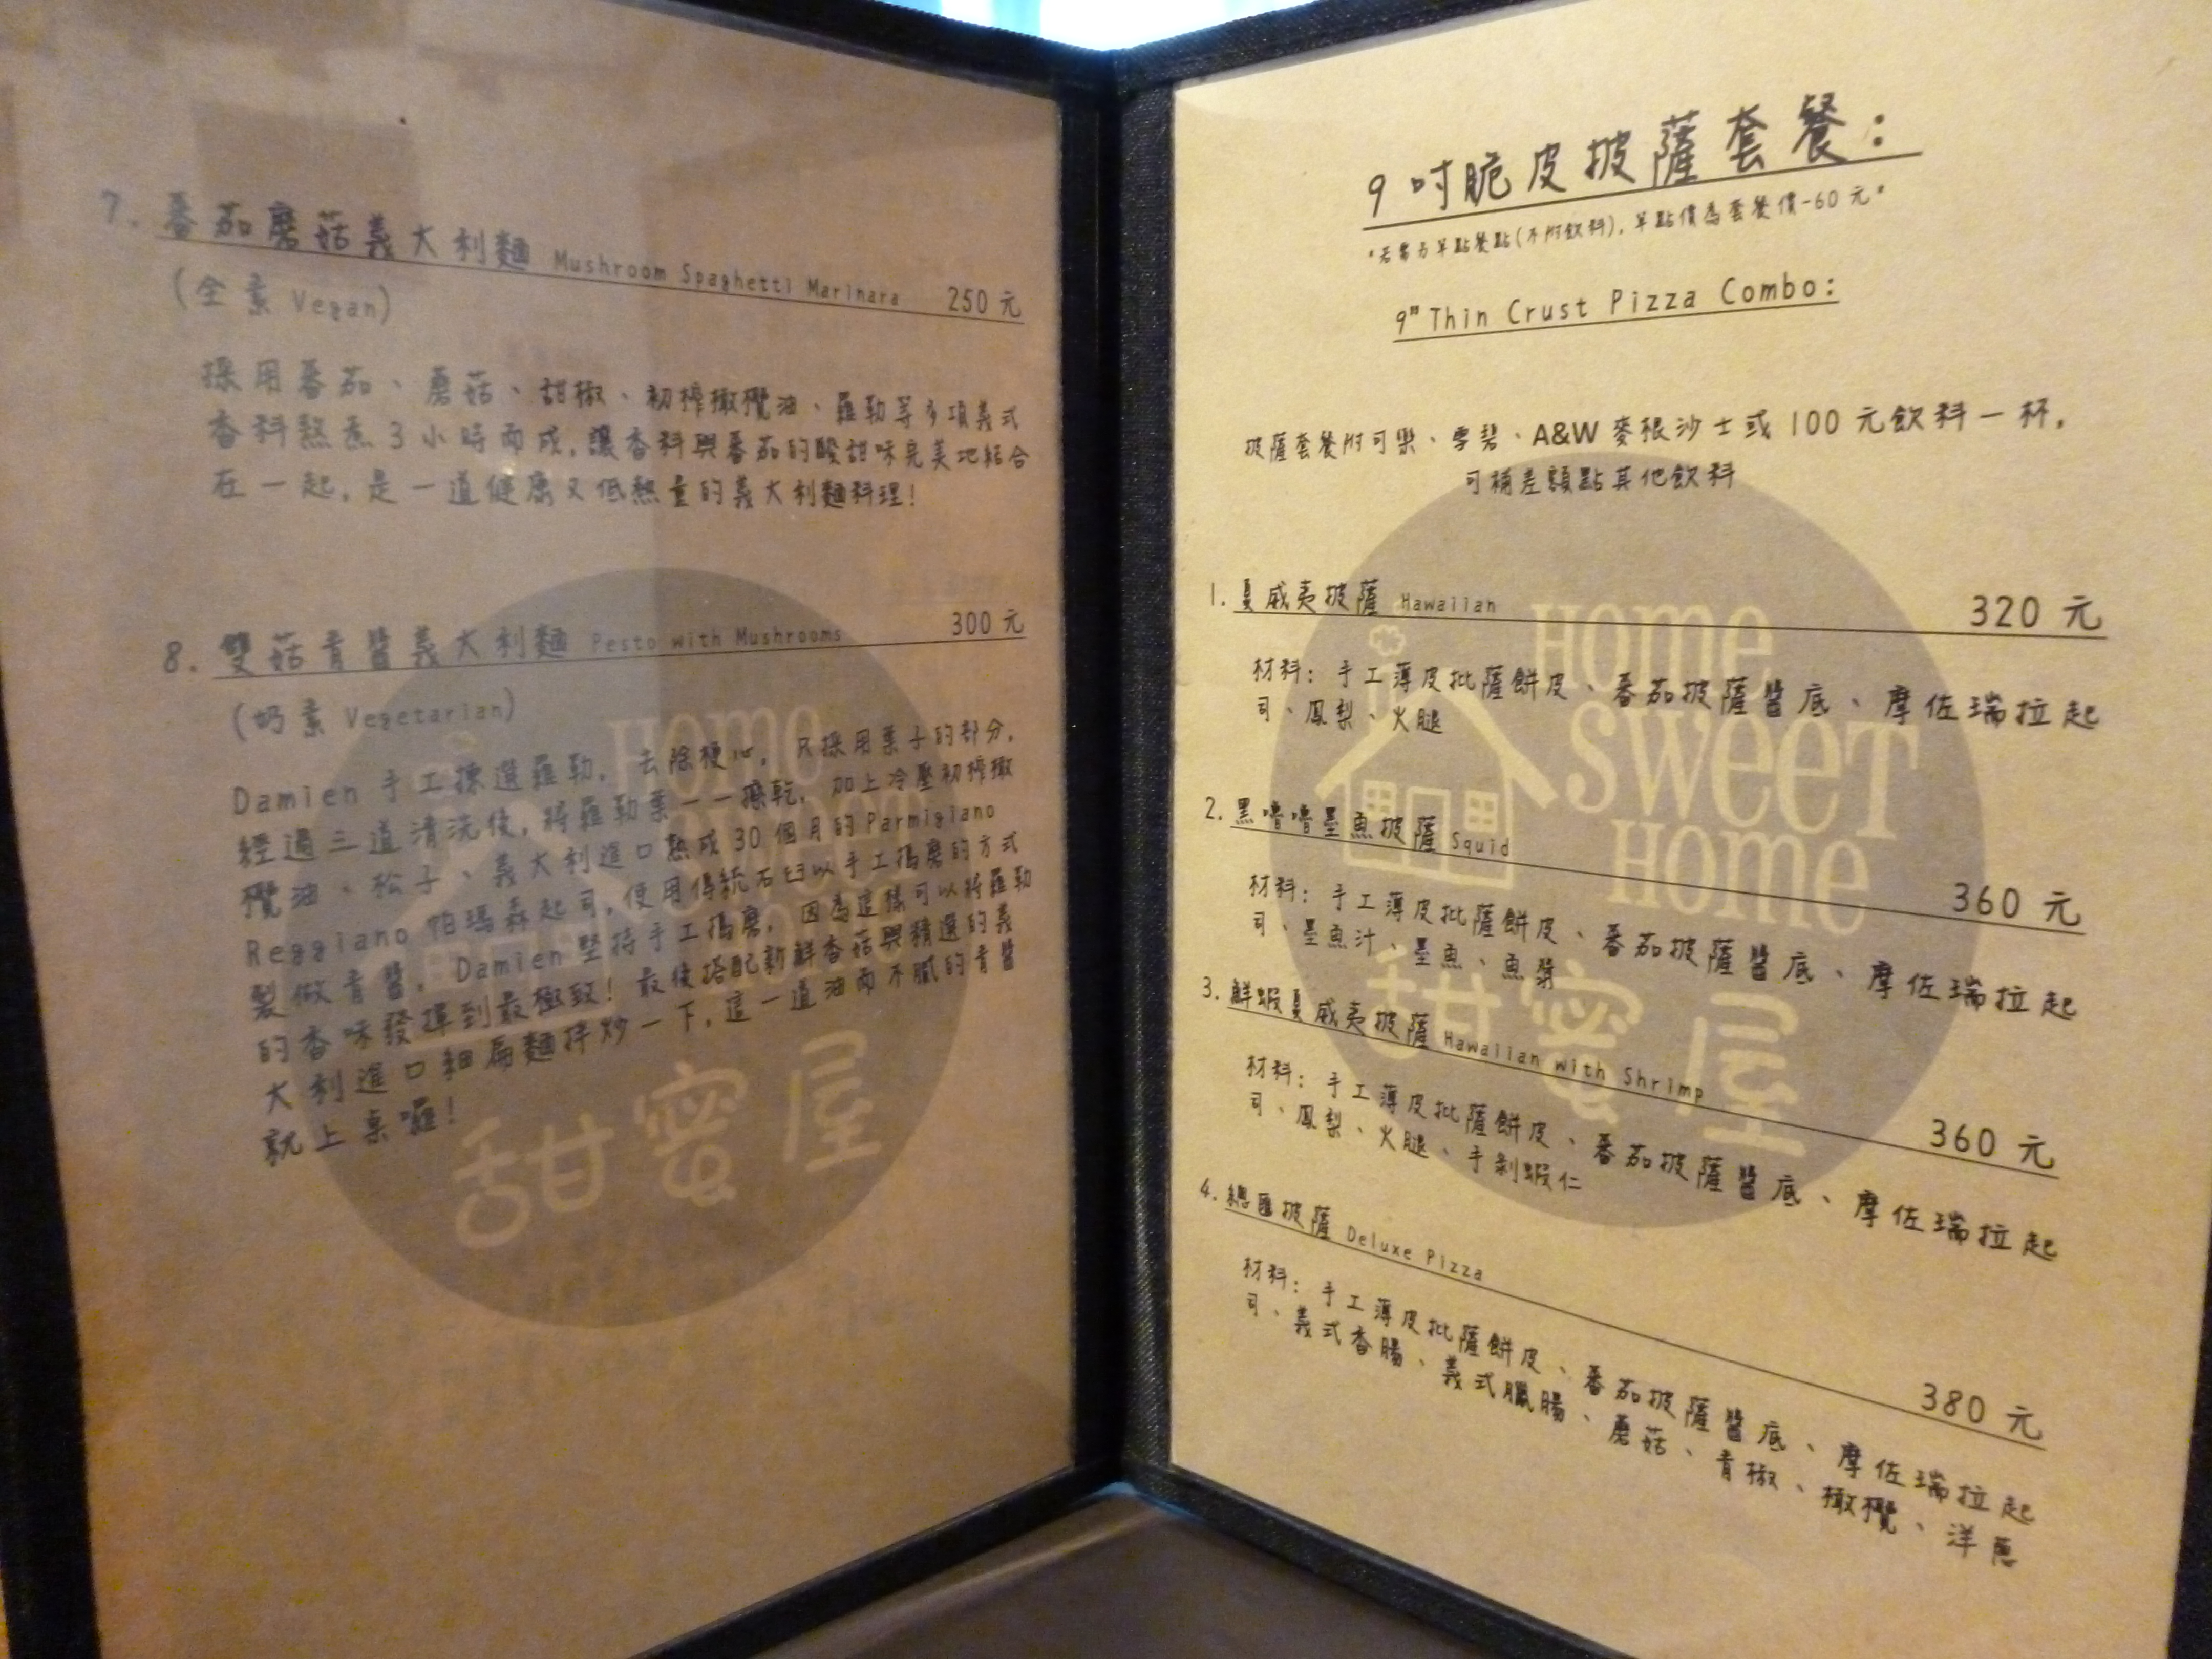 7. 蕃茄磨菇義大利麵 Mushroom Spaghetti Marinara 250 元
(全素 Vegan)
採用蕃茄、蘑菇、甜椒、初榨橄欖油、羅勒等多項義式
香料熬煮 3 小時而成,讓香料與蕃茄的酸甜味完美地結合
在一起,是一道健康又低熱量的義大利麵料理!
8. 雙菇青醬義大利麵 Pesto with Mushrooms 300 元
(奶素 Vegetarian)
Damien 手工揀選羅勒,去除梗心,只採用葉子的部分,
經過三道清洗後,將羅勒葉一一擦乾,加上冷壓初榨橄
欖油、松子、義大利進口熟成 30 個月的 Parmigiano
Reggiano 帕瑪森起司,使用傳統石臼以手工搗磨的方式
製做青醬,Damien 堅持手工搗磨,因為這樣可以將羅勒
的香味發揮到最極致!最後搭配新鮮香菇與精選的義
大利進口細扁麵拌炒一下,這一道油而不膩的青醬
就上桌囉!
HOME
SWEET
HOME
甜蜜屋
9 吋脆皮披薩套餐:
*若需另單點餐點(不附飲料),單點價為套餐價-60 元*
9" Thin Crust Pizza Combo:
披薩套餐附可樂、雪碧、A&W 麥根沙士或 100 元飲料一杯,
可補差額點其他飲料
1. 夏威夷披薩 Hawaiian 320 元
材料: 手工薄皮批薩餅皮、蕃茄披薩醬底、摩佐瑞拉起
司、鳳梨、火腿
2. 黑嚕嚕墨魚披薩 Squid 360 元
材料: 手工薄皮批薩餅皮、蕃茄披薩醬底、摩佐瑞拉起
司、墨魚汁、墨魚、魚漿
3. 鮮蝦夏威夷披薩 Hawaiian with Shrimp 360 元
材料: 手工薄皮批薩餅皮、蕃茄披薩醬底、摩佐瑞拉起
司、鳳梨、火腿、手剝蝦仁
4. 總匯披薩 Deluxe Pizza 380 元
材料: 手工薄皮批薩餅皮、蕃茄披薩醬底、摩佐瑞拉起
司、義式香腸、義式臘腸、蘑菇、青椒、橄欖、洋蔥
HOME
SWEET
HOME
甜蜜屋